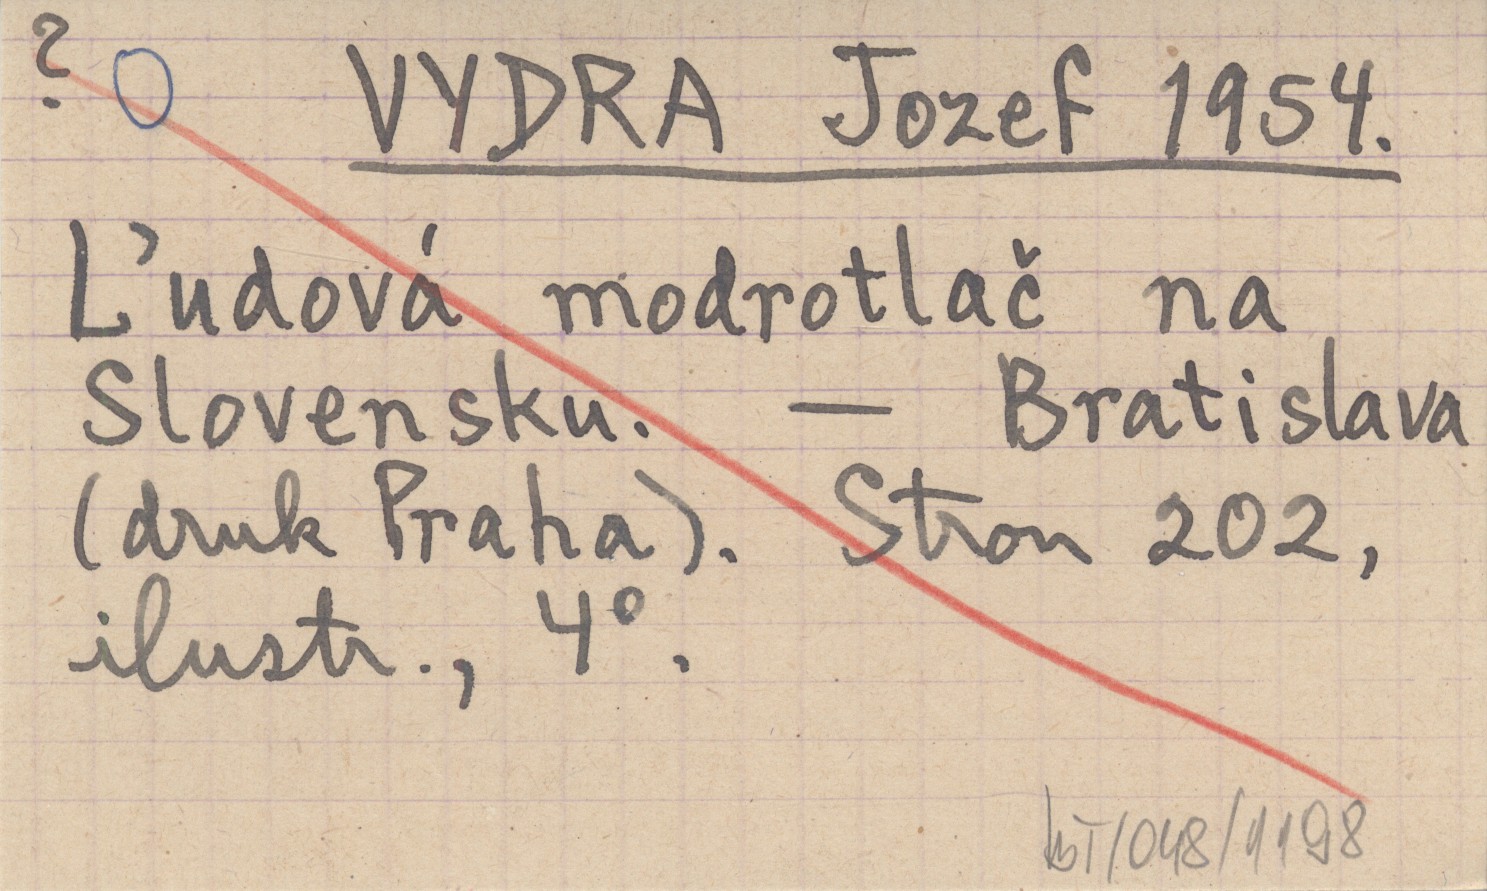 ?
VYDRA Jozef 1954.
Ľudová modrotlač na
Slovensku. — Bratislava
(druk Praha). Stron 202,
ilustr., 4°.
/048/1198